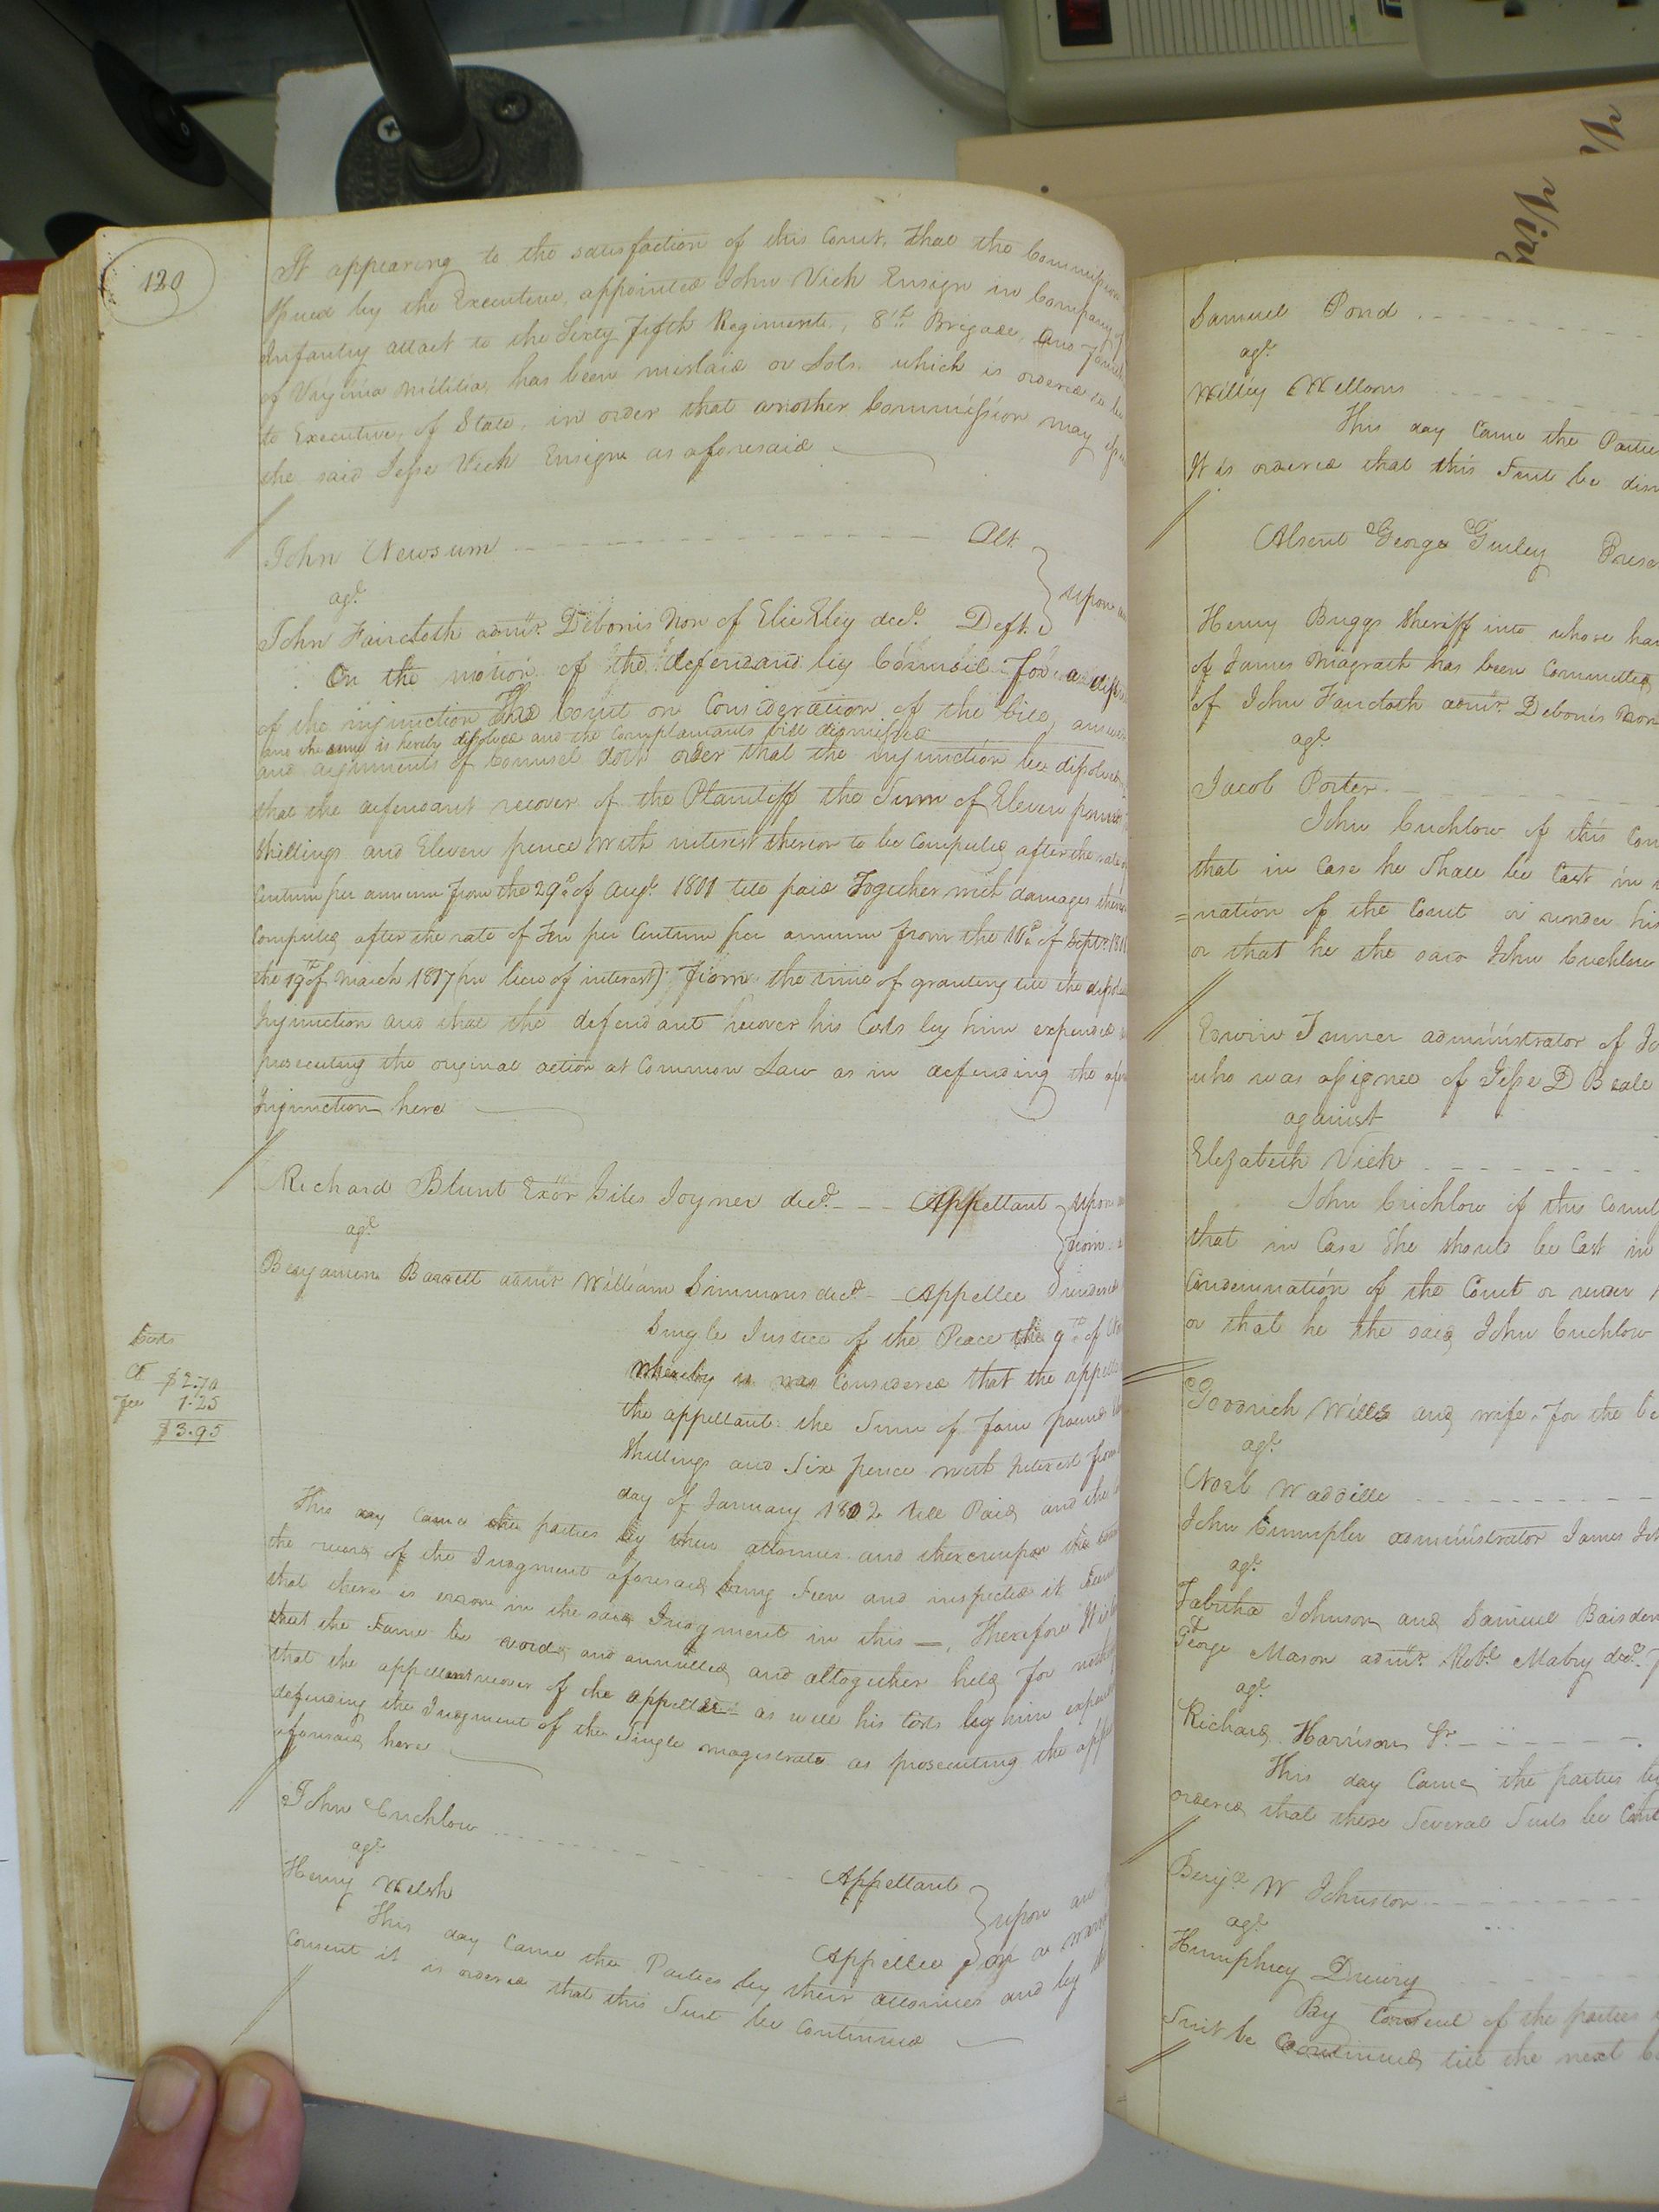 120
It appearing to the satisfaction of this Court, that the Commission
Issued by the Executive, appointed John Vick Ensign in Company of
Infantry attact to the Sixty fifth Regiment, 8th Brigade, and
of Virginia militia, has been mislaid or Lost which is ordered to be
to Executive, of State, in order that another Commission may
the said Jesse Vick Ensign as aforesaid
John Newsum Plt.
agt.
John Faircloth admr. Debonis Non of Elie Eley decd. Deft.
upon
On the motion of the defendant by Counsil for a
of the injunction The Court on Consideration of the bill, answer
and the same is hereby dissolved and the Complainants bill dismissed
and arguments of Counsel doth order that the injunction be dissolved
that the defendant recover of the Plaintiff the Sum of Eleven pounds
Shillings and Eleven pence With interest thereon to be Computed after the rate
Centum per annum from the 29th of Augt. 1801 till paid Together with damages
Computed after the rate of Ten per Centum per annum from the 10th of Septr.
the 19th of March 1817 (in lieu of interest) from the time of granting till the
Injunction and that the defendant recover his Costs by him expended
prosecuting the original action at Common Law as in defending the
Injunction here
Richard Blunt Exor Giles Joyner decd. Appellant
upon
agt.
from
Benjamin Barrett admr William Simmons decd. Appellee
rendered
Single Justice of the Peace the 9th of
Whereby it was Considered that the
the appellant the Sum of Four pounds
Shillings and Six pence with Interest from
day of January 1802 till Paid and the
Costs
Ct $2.70
Fee 1.25
$3.95
This day Came the parties by their attornies and thereupon the
the record of the Judgment aforesaid being Seen and inspected it
that there is error in the said Judgment in this —, Therefore
that the Same be void and annulled and altogether held for
that the appellant recover of the appellee as well his Costs by him
defending the Judgment of the Single magistrate as prosecuting the
aforesaid here
John Crichlow
Appellant
agt.
upon an
Henry Welsh
Appellee
on a
This day Came the Parties by their attornies and by
Consent it is ordered that this Suit be Continued
Samuel Pond
agt.
Willey Wellons
This day Came the Parties
It is ordered that this Suit be
Absent George Gurley
Henry Briggs Sheriff into whose
of James Magrath has been Committed
of John Faircloth admr. Debonis Non
agt.
Jacob Porter
John Crichlow of this
that in Case he Shall be Cast in
=nation of the Court or render his
or that he the said John Crichlow
Edwin Turner administrator of
who was assignee of Jesse D Beale
against
Elizabeth Vick
John Crichlow of this
that in Case She should be Cast in
Condemnation of the Court or render
or that he the said John Crichlow
Goodrich Wills and wife for the
agt.
Noel Waddille
John Crumpler administrator James
agt.
Tabitha Johnson and Samuel
George Mason admr. Robt. Mabry decd.
agt.
Richard Harrison Sr
This day Came the parties
ordered that these Several Suits be
Benja W Johnston
agt.
Humphrey Drewry
By Consent of the parties
Suit be Continued till the next